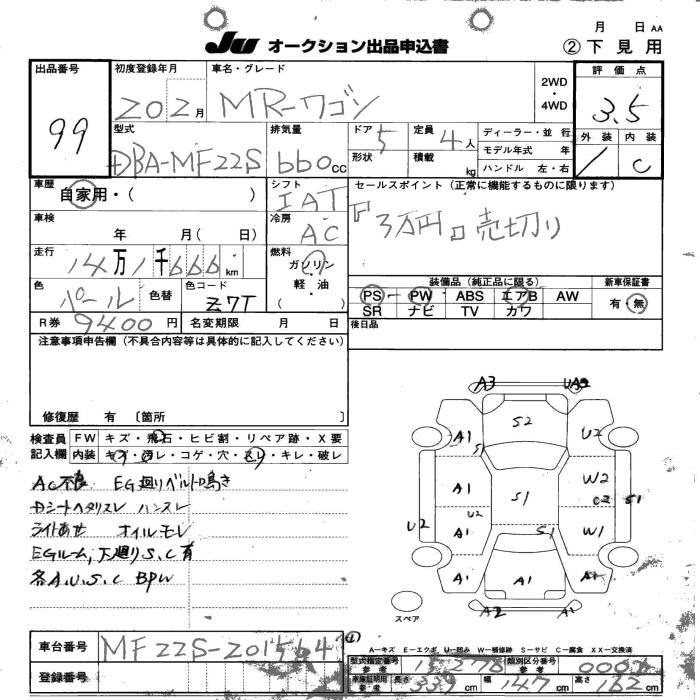 月 日 AA
JU オークション出品申込書 ②下見用
出品番号 99
初度登録年月 202月
車名・グレード MR-ワゴン
2WD・4WD
評価点 3.5
外装 / 内装 C
型式 DBA-MF22S
排気量 660cc
ドア 5
定員 4人
形状
積載 kg
ディーラー・並行
モデル年式 年
ハンドル 左・右
車歴 自家用・( )
シフト IAT
セールスポイント(正常に機能するものに限ります)
『3万円。売切り
車検 年 月( 日)
冷房 AC
走行 14万1千666km
燃料 ガソリン・軽油・( )
色 パール 色替
色コード Z7T
装備品(純正品に限る)
PS PW ABS エアB AW
SR ナビ TV カワ
新車保証書 有・無
R券 9400円
名変期限 月 日
後日品
注意事項申告欄(不具合内容等は具体的に記入してください)
修復歴 有 〔箇所 〕
検査員記入欄
FW キズ・飛石・ヒビ割・リペア跡・X要
内装 キズ・汚レ・コゲ・穴・スレ・キレ・破レ
AC不良 EG廻リベルト鳴き
Dシートヘタリスレ ハンスレ
ライトあせ オイルモレ
EGルーム,下廻りS.C有
各A.U.S.C BPW
A3 UA3
S2
A1 S1 U2
A1 S1 W2 C2 S1
U2 A1 U2 S1 W1
A1 A1 A1
A2 A1
スペア
A-キズ E-エクボ U-凹み W-補修跡 S-サビ C-腐食 XX-交換済
車台番号 MF22S-201564
登録番号
型式指定番号 参考 15278
類別区分番号 参考
車庫証明用 参考 長さ 339cm 幅 147cm 高さ 162cm